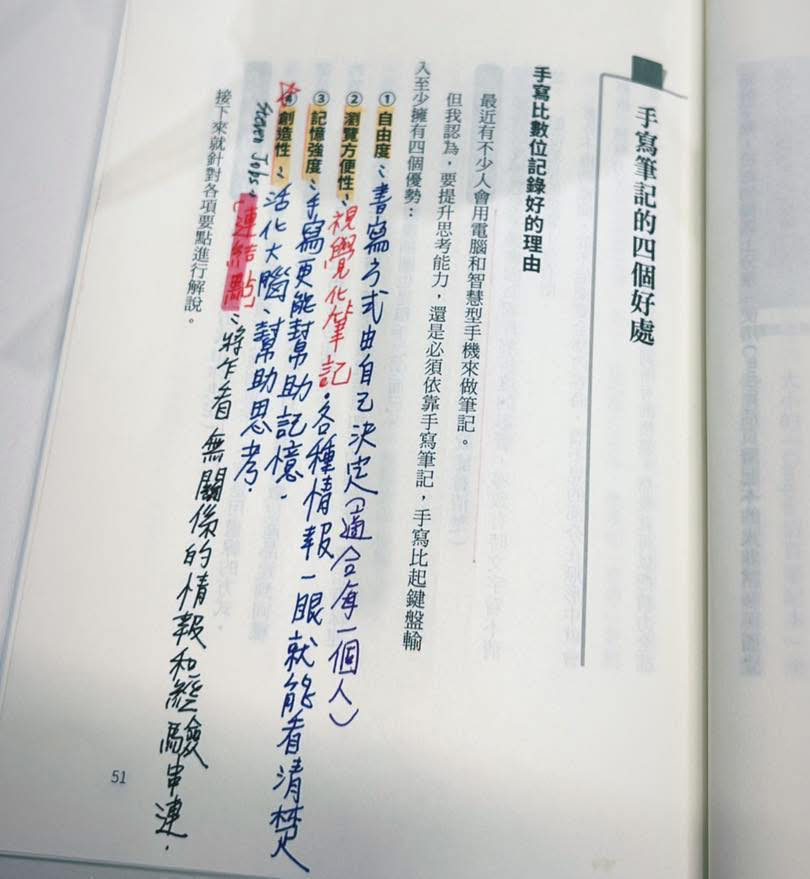 手寫筆記的四個好處
手寫比數位記錄好的理由
最近有不少人會用電腦和智慧型手機來做筆記。
但我認為，要提升思考能力，還是必須依靠手寫筆記，手寫比起鍵盤輸
入至少擁有四個優勢：
① 自由度：書寫方式由自己決定（適合每一個人）
② 瀏覽方便性：視覺化筆記．各種情報一眼就能看清楚
③ 記憶強度：手寫更能幫助記憶．
④ 創造性：活化大腦、幫助思考．
Steven Jobs：「連結點」：將乍看無關係的情報和經驗串連．
接下來就針對各項要點進行解說。
51